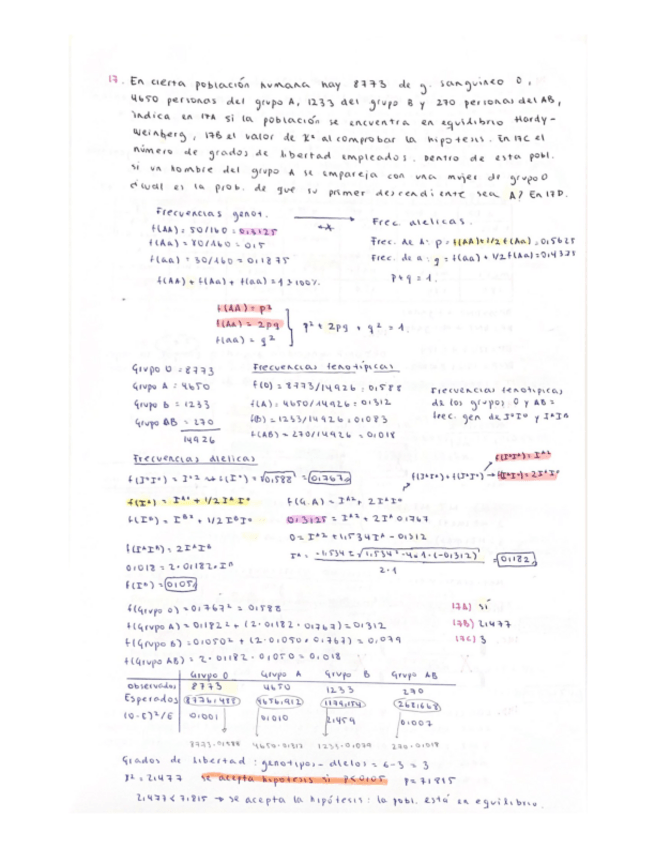 17. En cierta población humana hay 8773 de g. sanguineo O,
4650 personas del grupo A, 1233 del grupo B y 270 personas del AB,
indica en 17A si la población se encuentra en equilibrio Hardy-
Weinberg, 17B el valor de X² al comprobar la hipotesis. En 17C el
número de grados de libertad empleados. Dentro de esta pobl.
si un hombre del grupo A se empareja con una mujer de grupo O
cual es la prob. de que su primer descendiente sea A? En 17D.
Frecuencias genot.
Frec. alelicas.
f(AA) = 50/160 = 0,3125
f(Aa) = 80/160 = 0,5
f(aa) = 30/160 = 0,1875
Frec. de A: p = f(AA)+1/2 f(Aa) = 0,5625
Frec. de a: q = f(aa) + 1/2 f(Aa) = 0,4375
f(AA) + f(Aa) + f(aa) = 1 > 100%.
p+q = 1.
f(AA) = p²
f(Aa) = 2pq
f(aa) = q²
p² + 2pq + q² = 1.
Grupo O = 8773
Grupo A = 4650
Grupo B = 1233
Grupo AB = 270
14926
Frecuencias fenotípicas
f(O) = 8773/14926 = 0,588
f(A) = 4650/14926 = 0,312
f(B) = 1233/14926 = 0,083
f(AB) = 270/14926 = 0,018
Frecuencias fenotípicas
de los grupos O y AB =
frec. gen de IºIº y IᴬIᴮ
Frecuencias alelicas
f(Iº) = √0,588 = 0,7670
f(Iᴬ) = Iᴬ² + 1/2 Iᴬ Iº
f(Iᴮ) = Iᴮ² + 1/2 IᴮIº
f(G.A) = Iᴬ² + 2IᴬIº
0,3125 = Iᴬ² + 2Iᴬ 0,767
0 = Iᴬ² + 1,534Iᴬ - 0,312
2·1
= 0,182
f(IᴬIᴮ) = 2IᴬIᴮ
0,018 = 2·0,182·Iᴮ
f(Grupo O) = 0,767² = 0,588
f(Grupo A) = 0,182² + (2·0,182·0,767) = 0,312
f(Grupo B) = 0,050² + (2·0,050·0,767) = 0,079
f(Grupo AB) = 2·0,182·0,050 = 0,018
17A) sí
17B) 2,477
17C) 3
Grupo O Grupo A Grupo B Grupo AB
Observados 8773 4650 1233 270
Esperados 8776,488 4656,912 1179,154 268,668
(O-E)²/E 0,001 0,010 2,459 0,007
8773·0,588 4650·0,312 1233·0,079 270·0,018
Grados de libertad: genotipos - alelos = 6-3 = 3
X² = 2,477 se acepta hipotesis si P<0,05 P = 7,815
2,477 < 7,815 → se acepta la hipótesis: la pobl. está en equilibrio.